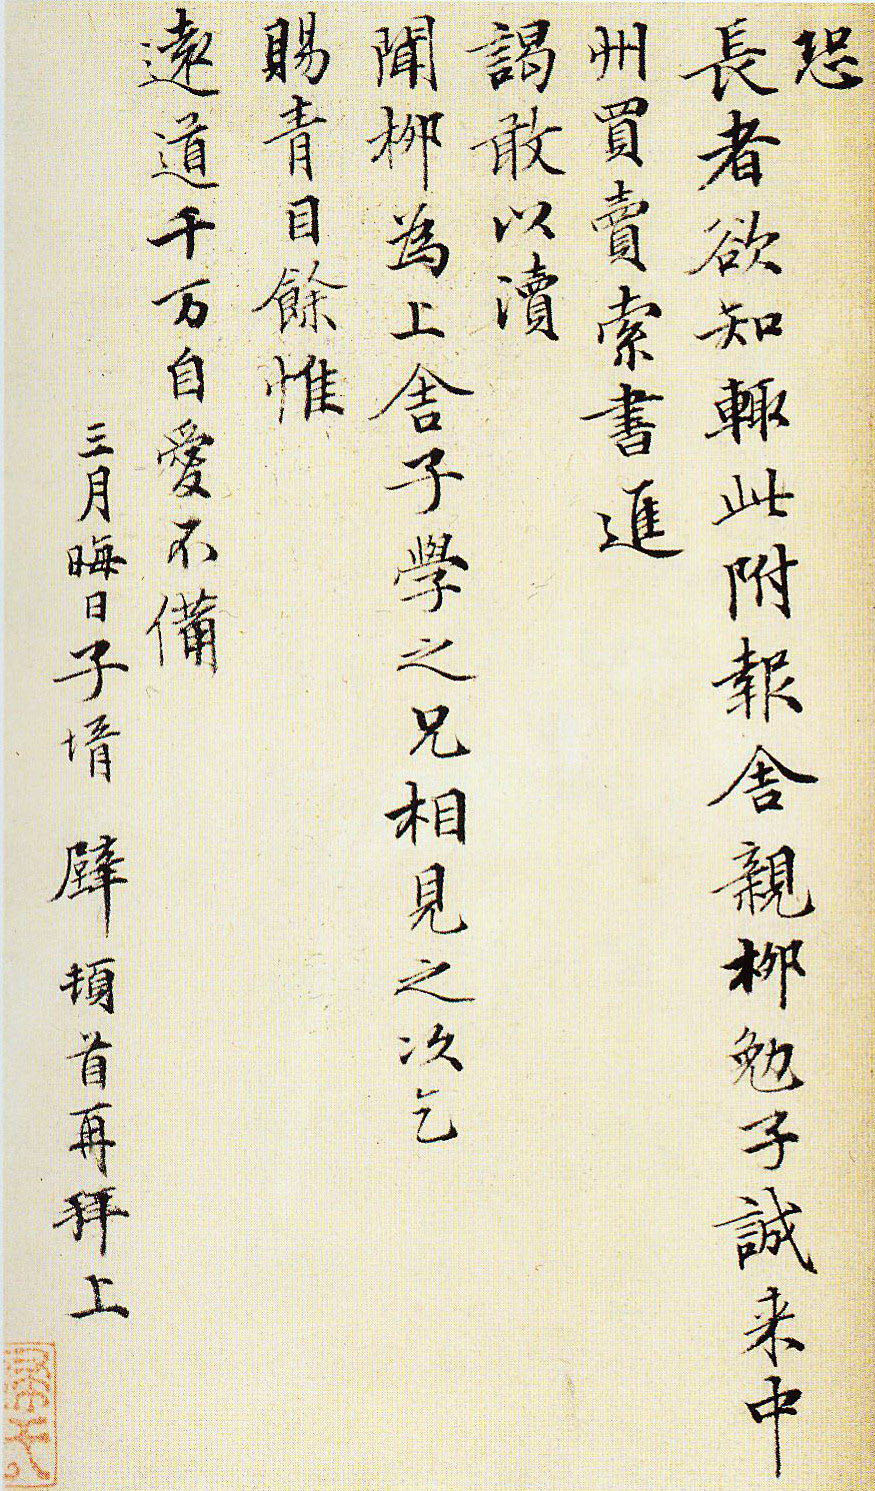 恐
長者欲知輙此附報舍親柳勉子誠来中
州買賣索書進
謁敢以瀆
聞柳為上舍子學之兄相見之次乞
賜青目餘惟
遠道千万自愛不備
三月晦日子壻 頓首再拜上